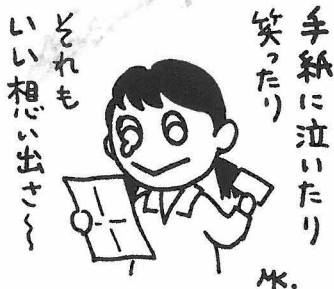 手紙に泣いたり
笑ったり
それも
いい想い出さ～
MK.